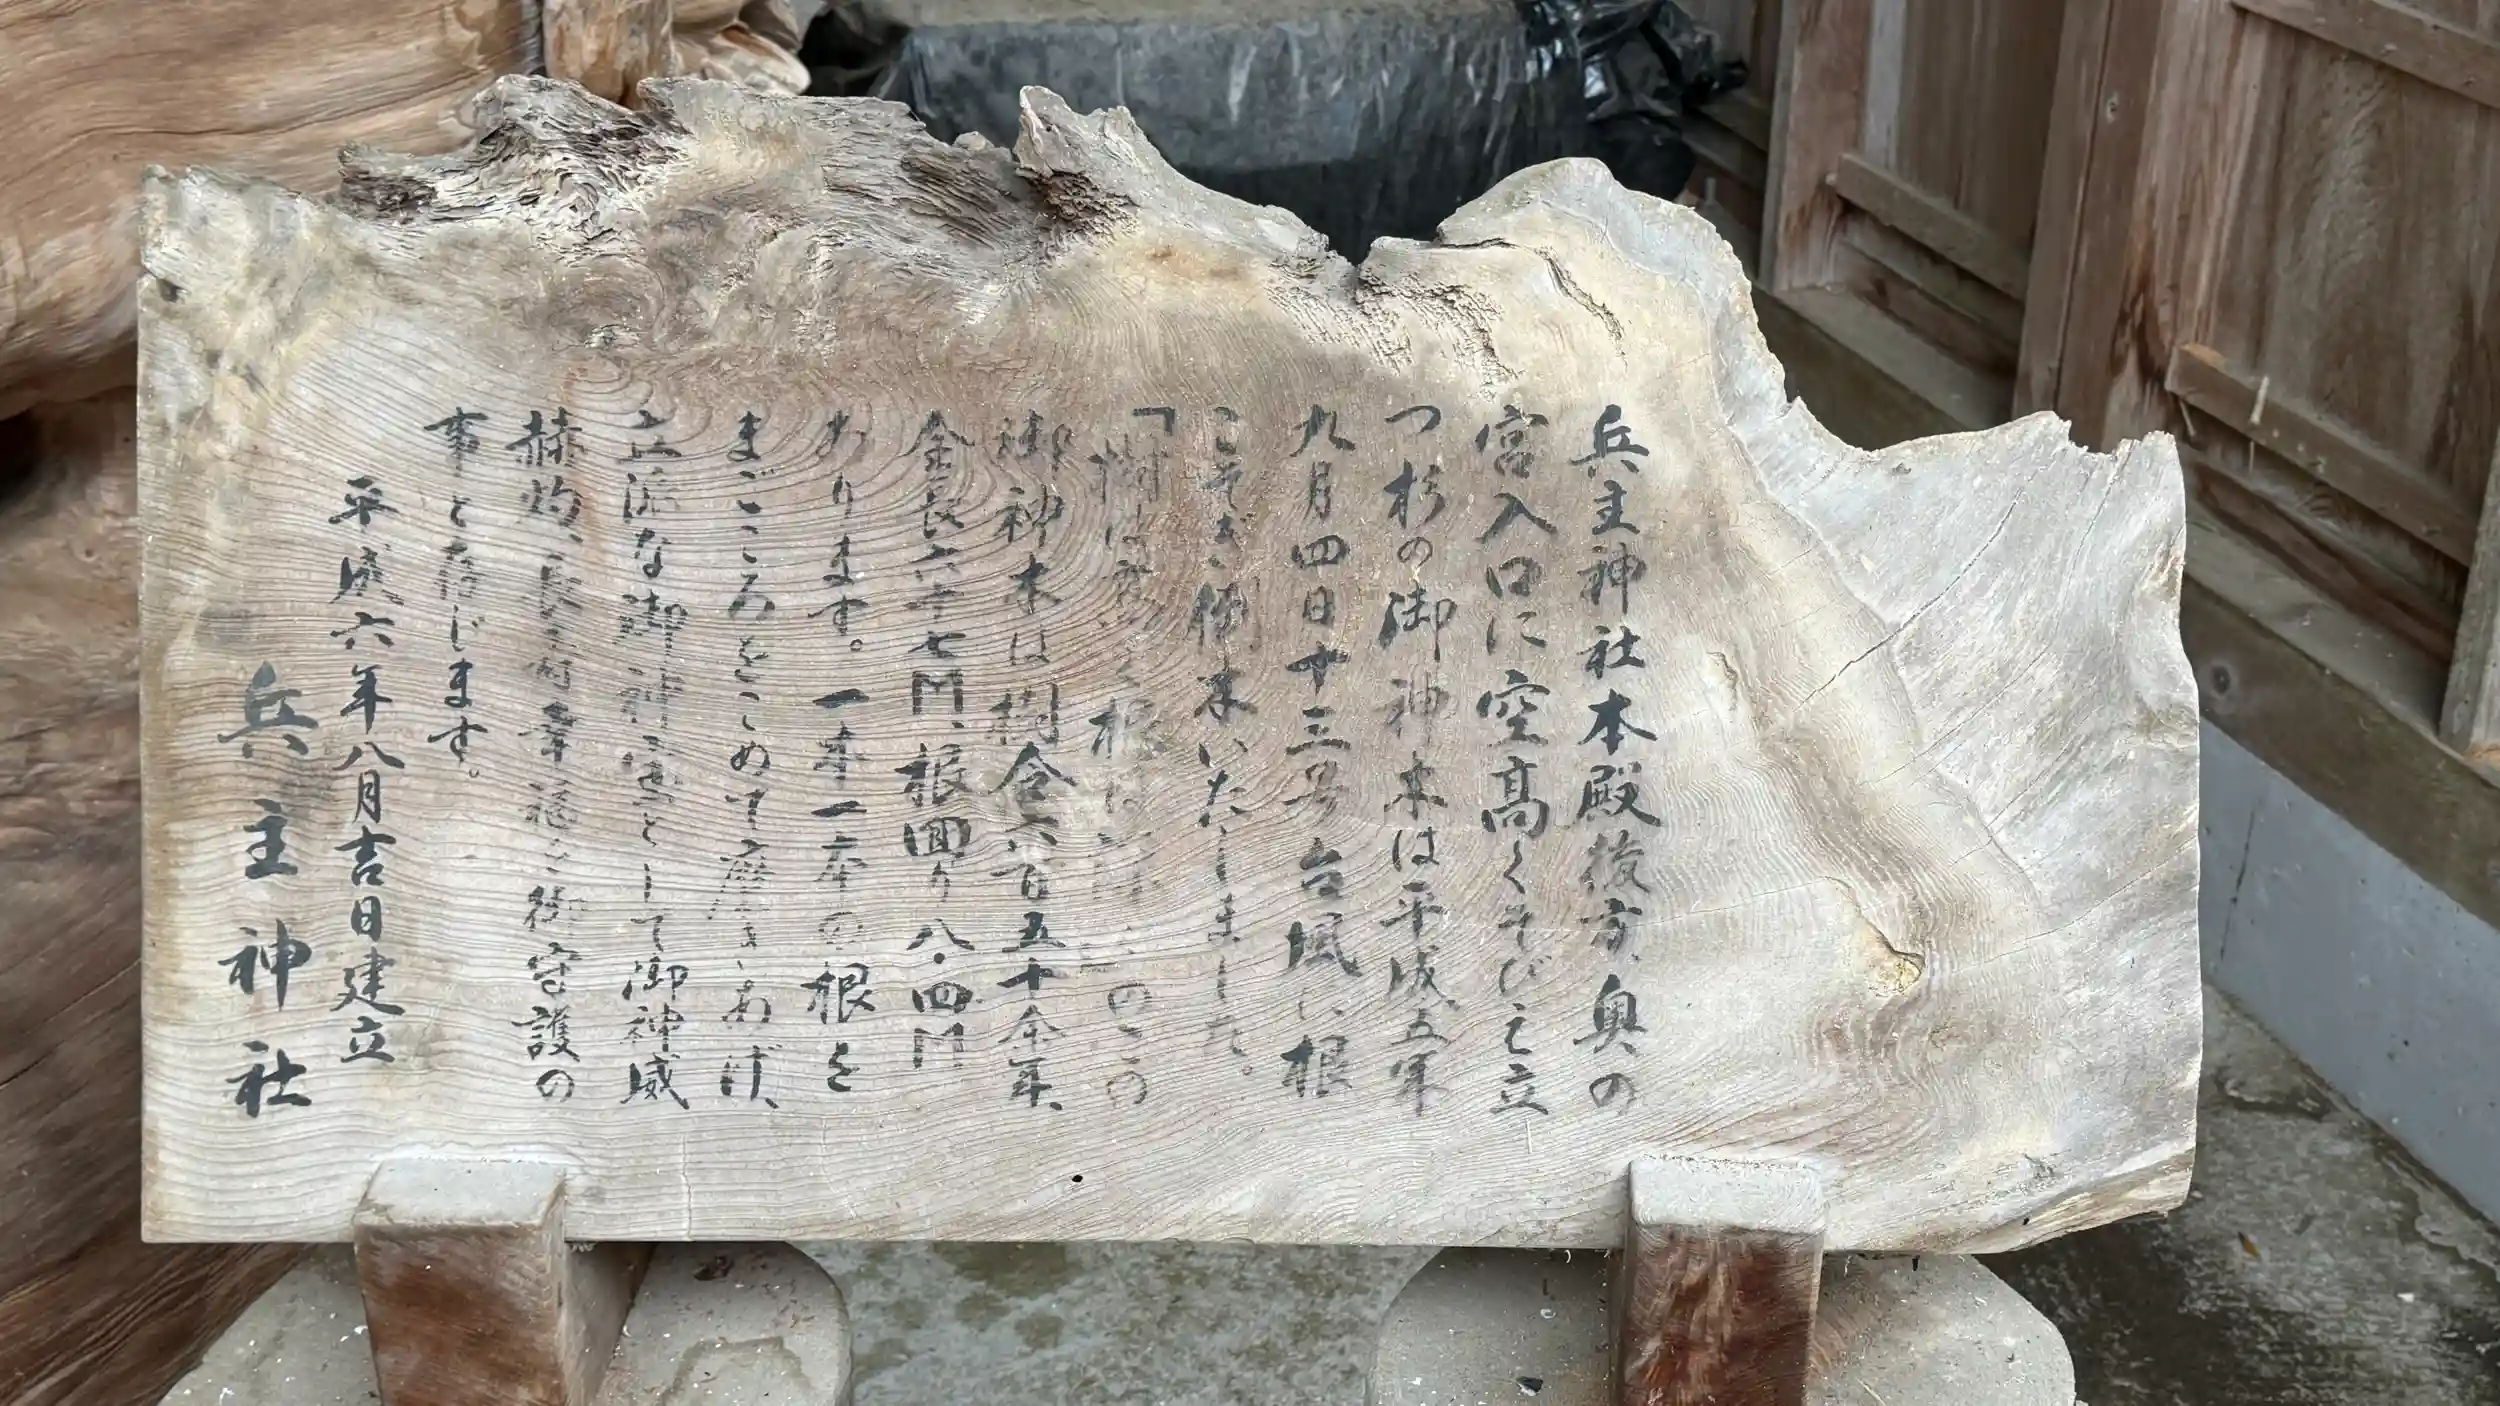 兵主神社本殿後方、奥の
宮入口に空高くそびえ立
つ杉の御神木は平成五年
九月四日十三号台風に根
こそぎ倒木いたしました。
「樹は 根は のこの
御神木は樹令六百五十余年、
全長六十七M、根回り八・四M
あります。一本一本の根を
まごころをこめて磨きあげ、
立派な御神宝として御神威
赫灼、長寿幸福を御守護の
事と存じます。
平成六年八月吉日建立
兵主神社